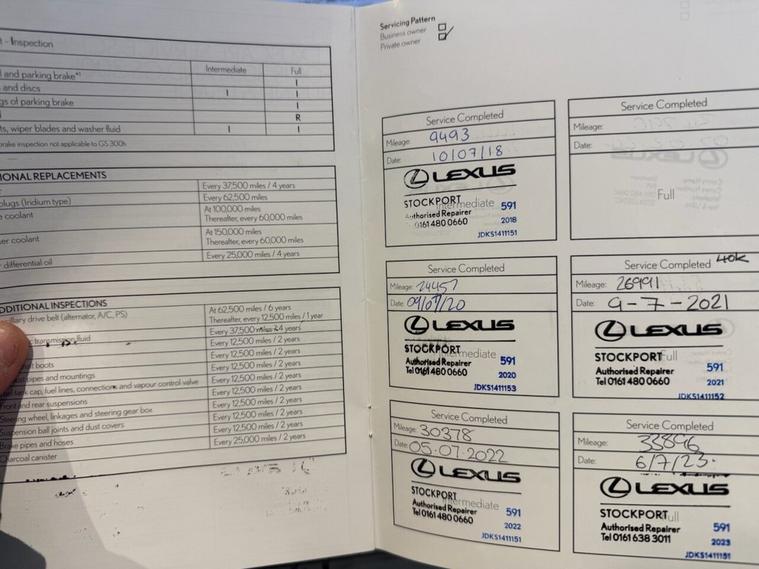 t - Inspection
Intermediate Full
l and parking brake*¹ I
s and discs I I
gs of parking brake I
R
ts, wiper blades and washer fluid I I
brake inspection not applicable to GS 300h
IONAL REPLACEMENTS
Every 37,500 miles / 4 years
plugs (Iridium type) Every 62,500 miles
e coolant At 100,000 miles
Thereafter, every 60,000 miles
er coolant At 150,000 miles
Thereafter, every 60,000 miles
differential oil Every 25,000 miles / 4 years
ADDITIONAL INSPECTIONS
iliary drive belt (alternator, A/C, PS) At 62,500 miles / 6 years
Thereafter, every 12,500 miles / 1 year
transmission fluid Every 37,500 miles / 4 years
Every 12,500 miles / 2 years
t boots Every 12,500 miles / 2 years
pipes and mountings Every 12,500 miles / 2 years
tank cap, fuel lines, connections and vapour control valve Every 12,500 miles / 2 years
Front and rear suspensions Every 12,500 miles / 2 years
Steering wheel, linkages and steering gear box Every 12,500 miles / 2 years
Suspension ball joints and dust covers Every 12,500 miles / 2 years
Brake pipes and hoses Every 12,500 miles / 2 years
Charcoal canister Every 25,000 miles / 2 years
Servicing Pattern
Business owner
Private owner
Service Completed
Mileage: 9493
Date: 10/07/18
LEXUS
STOCKPORT Intermediate 591
Authorised Repairer
0161 480 0660 2018
JDKS1411151
Service Completed
Mileage:
Date:
Full
Service Completed
Mileage: 24457
Date: 09/07/20
LEXUS
STOCKPORT mediate
Authorised Repairer 591
Tel 0161 480 0660 2020
JDKS1411153
Service Completed 40K
Mileage: 26991
Date: 9-7-2021
LEXUS
STOCKPORT Full
Authorised Repairer 591
Tel 0161 480 0660 2021
JDKS1411152
Service Completed
Mileage: 30378
Date: 05.07.2022
LEXUS
STOCKPORT
Authorised Repairer Intermediate 591
Tel 0161 480 0660 2022
JDKS1411151
Service Completed
Mileage: 33896
Date: 6/7/23.
LEXUS
STOCKPORT Full
Authorised Repairer 591
Tel 0161 638 3011 2023
JDKS1411151